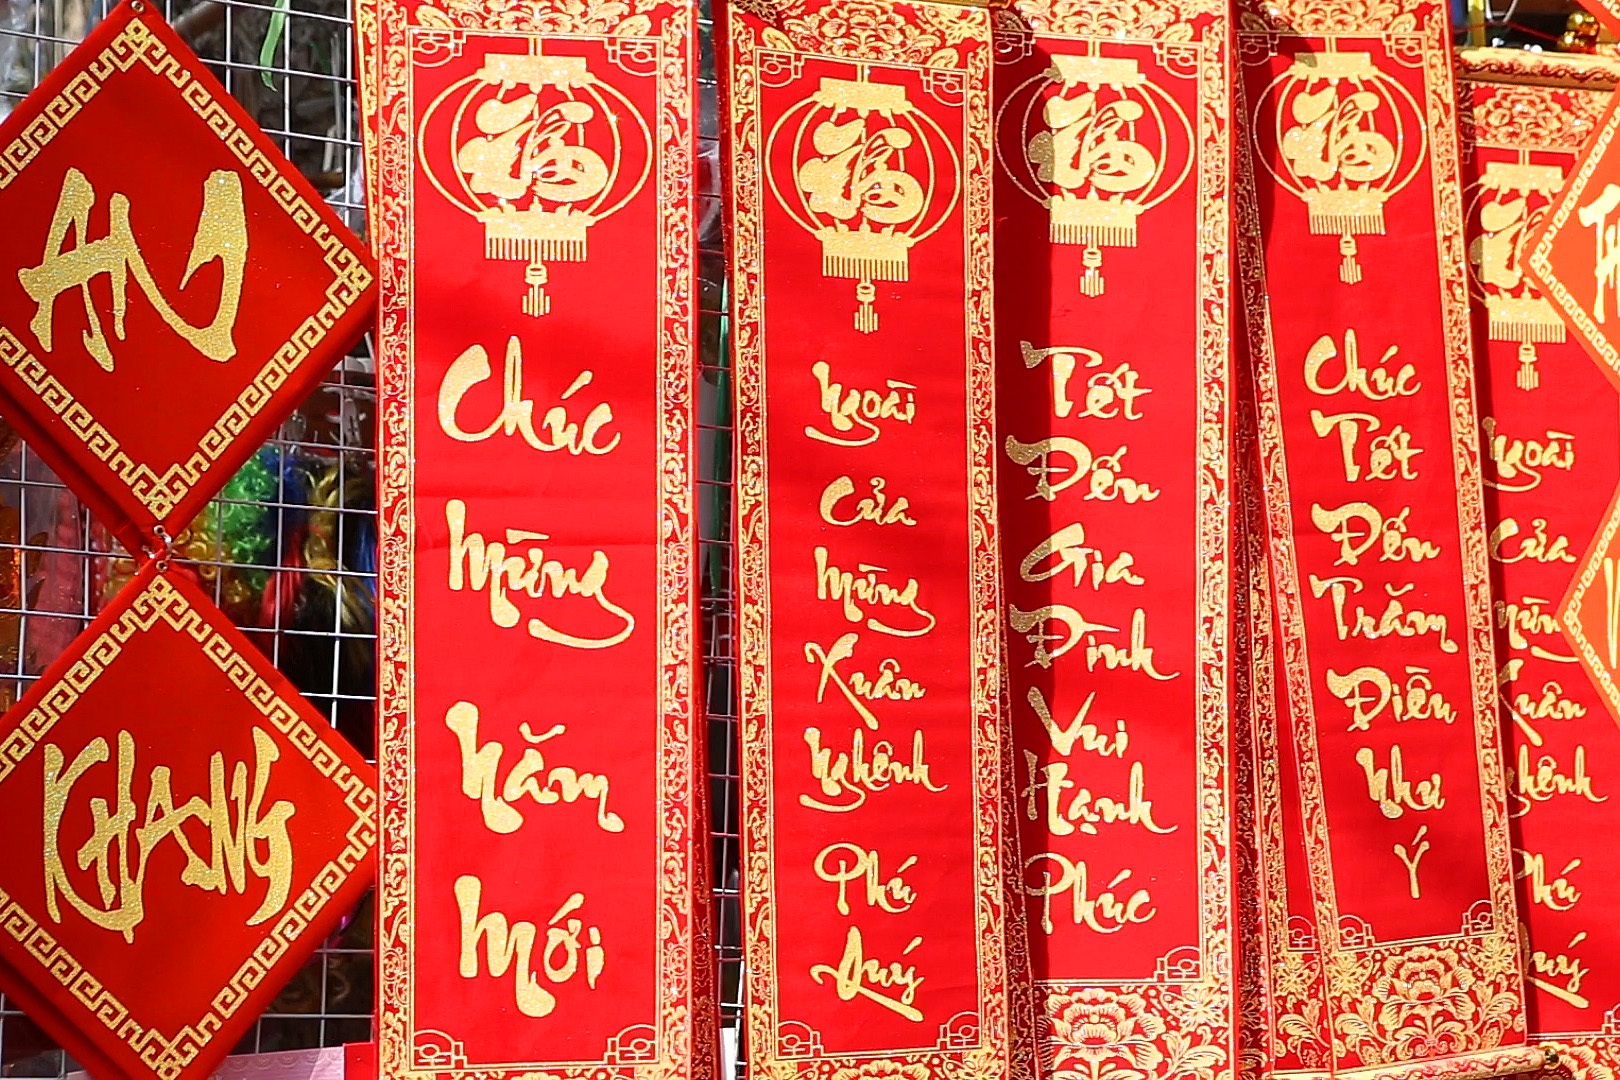 AN
KHANG
福
Chúc
Mừng
Năm
Mới
福
Ngoài
Cửa
Mừng
Xuân
Nghênh
Phú
Quý
福
Tết
Đến
Gia
Đình
Vui
Hạnh
Phúc
福
Chúc
Tết
Đến
Trăm
Điều
Như
Ý
福
Ngoài
Cửa
Mừng
Xuân
Nghênh
Phú
Quý